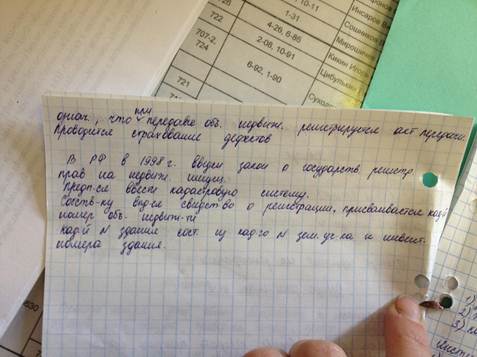 10-11
1-31
Инсаров Ва
722
4-26, 6-86
Сошников
707-2,
724
2-08, 10-91
Мирошни
Кикин Игорь
6-92, 1-90
Цибульки
721
Сухо
означ., что при передаче об. недвиж. регистрируется акт передачи.
Проводится страхование дефектов
В РФ в 1998 г. введен закон о государств. регистр.
прав на недвиж. имущ.
Предп-ся ввести кадастровую систему.
Собств-ку выд-ся свид-ство о регистрации, присваивается кад.й
номер об. недвиж-ти
Кад.й N здания сост. из кад-го N зем. уч-ка и инвент.
номера здания.
630
1)
2)
3)